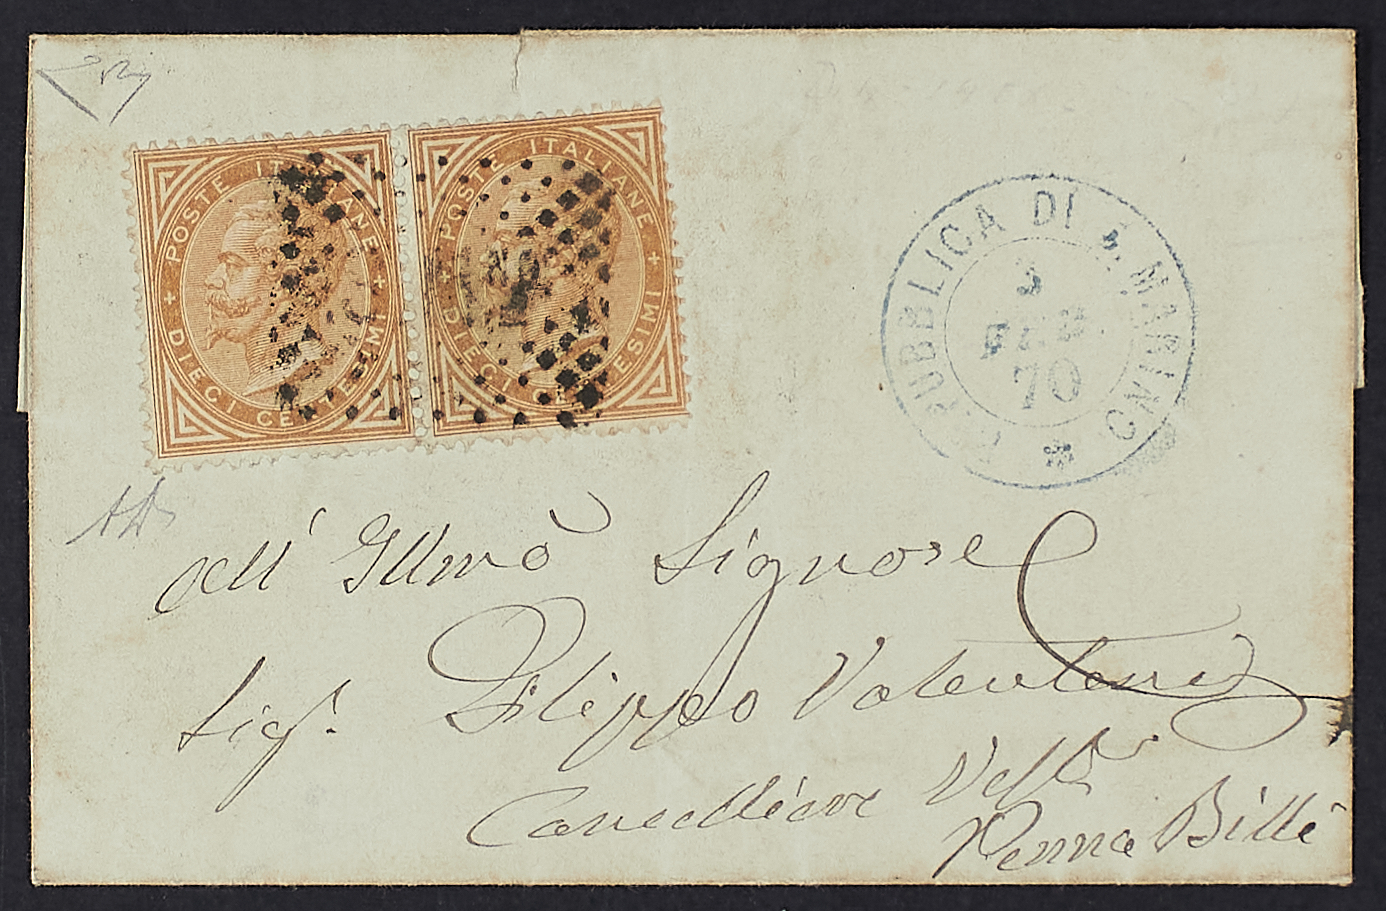 POSTE ITALIANE
DIECI CENTESIMI
POSTE ITALIANE
DIECI CENTESIMI
REPUBBLICA DI S. MARINO
3
FEB
70
All' Illmo Signore
Sigr. Filippo Valentini
Cancelliere Vesle
Penna Billi